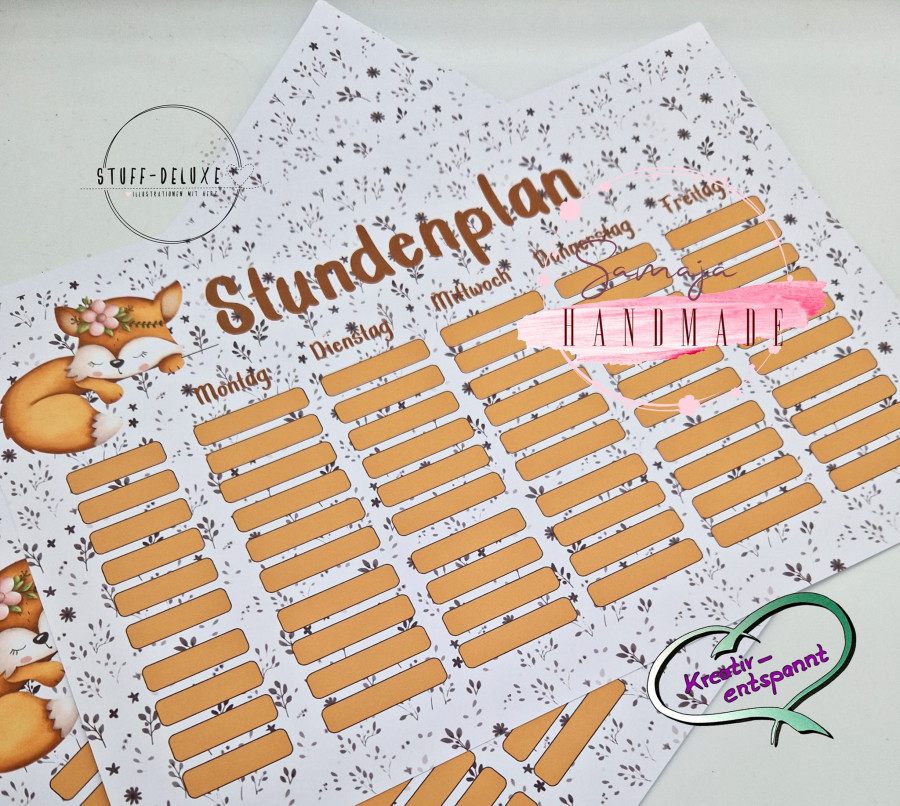 STUFF-DELUXE
ILLUSTRATIONEN MIT HERZ
Stundenplan
Montag
Dienstag
Mittwoch
Donnerstag
Freitag
Samaja
HANDMADE
Kreativ-
entspannt